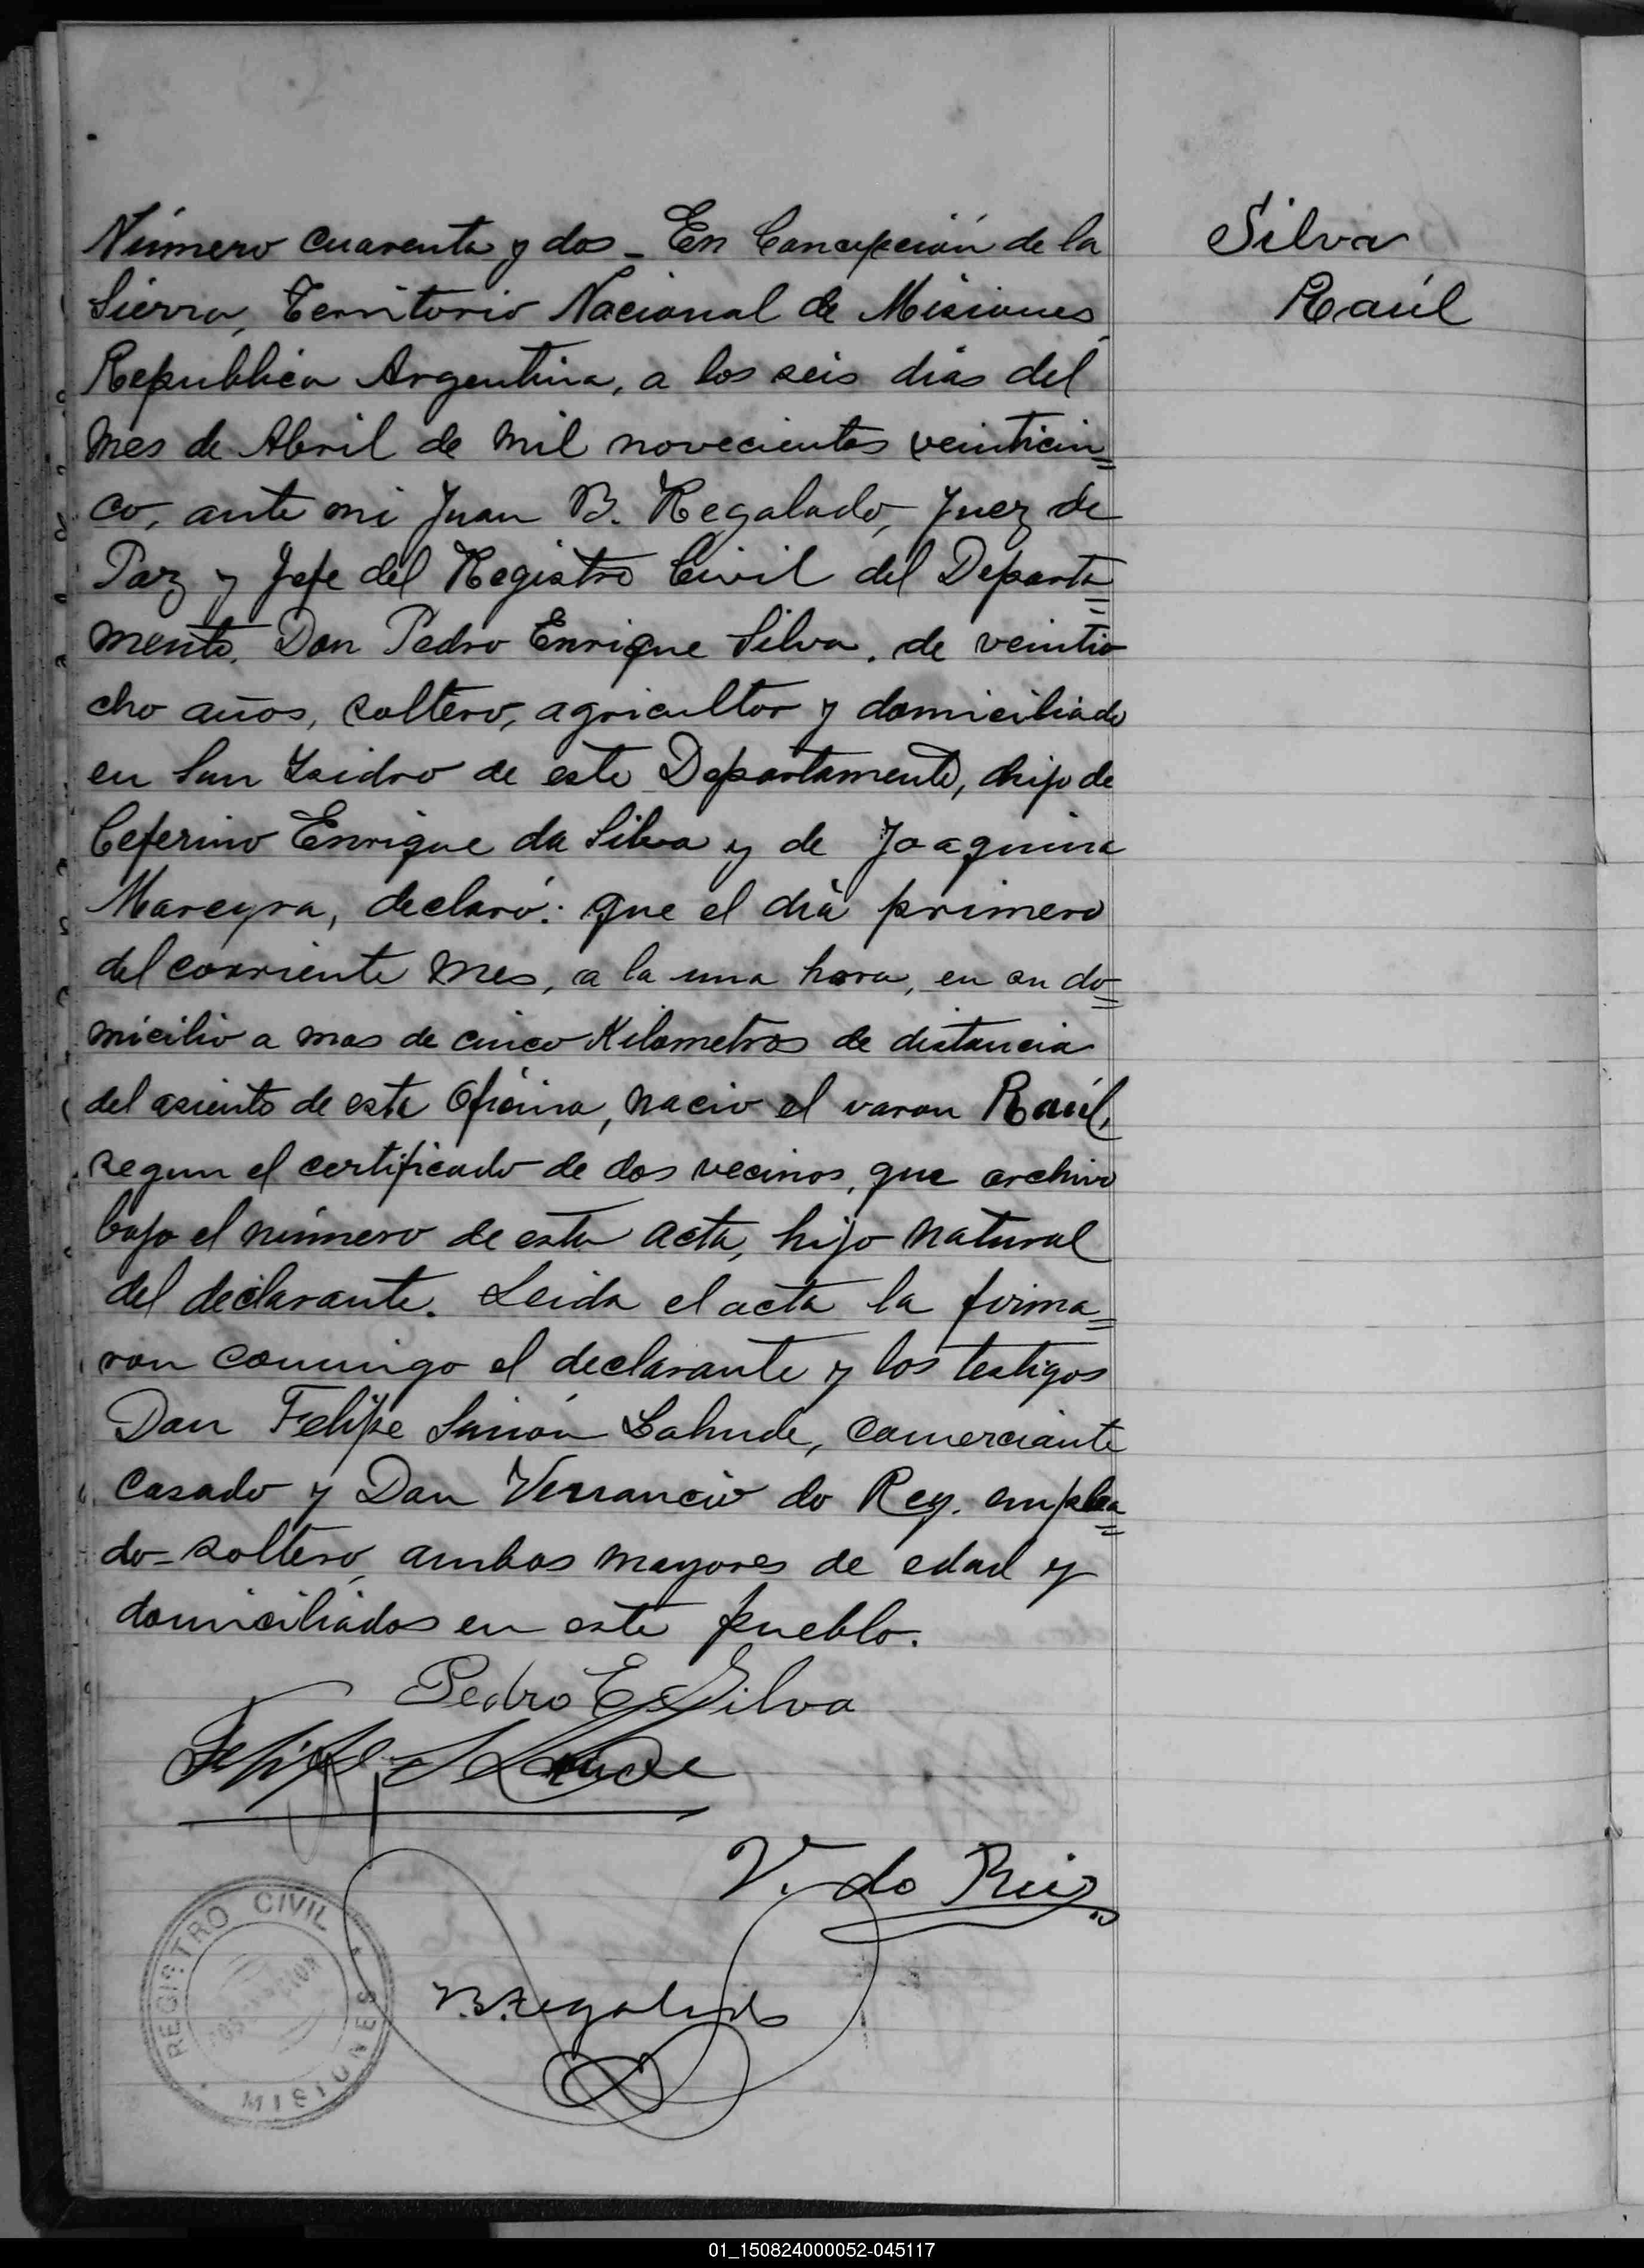 Silva
Raúl
Número cuarenta y dos - En Concepción de la
Sierra, Territorio Nacional de Misiones,
Republica Argentina, a los seis dias del
mes de Abril de mil novecientos veinticin=
co, ante mi Juan B. Regalado, Juez de
Paz y Jefe del Registro Civil del Departa=
mento, Don Pedro Enrique Silva, de veintio
cho años, soltero, agricultor y domiciliado
en San Isidro de este Departamento, hijo de
Ceferino Enrique da Silva y de Joaquina
Mareyra, declaró: que el dia primero
del corriente mes, a la una hora, en su do=
micilio a mas de cinco Kilometros de distancia
del asiento de esta Oficina, nacio el varon Raúl,
segun el certificado de dos vecinos, que archivo
bajo el número de esta acta, hijo natural
del declarante. Leida el acta la firma=
ron conmigo el declarante y los testigos
Don Felipe Simón Lahude, comerciante
casado y Don Venancio do Rey, emplea=
do-soltero, ambos mayores de edad y
domiciliados en este pueblo.
Pedro E Silva
Felipe S
V. do Rey
B. Regalado
REGISTRO CIVIL
MISIONES
01_150824000052-045117